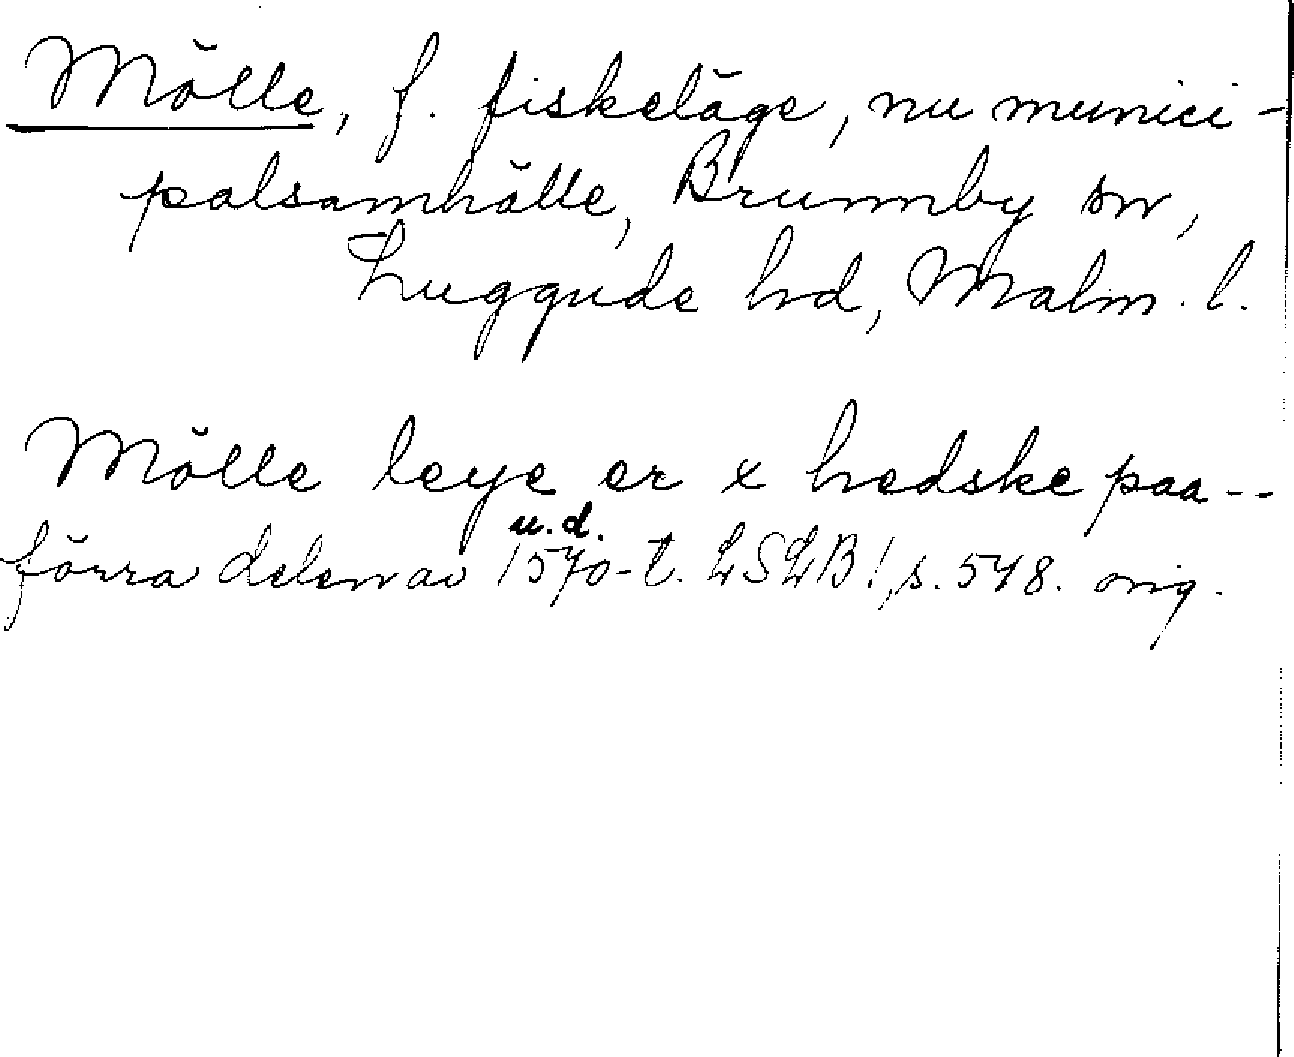 Mölle, f. fiskeläge, nu munici-
palsamhälle, Brunnby sn,
Luggude hd, Malm. l.
Mölle leye er x hedske paa--
u.d.
förra delen av 1570-t. LSLB!, s. 548. orig.